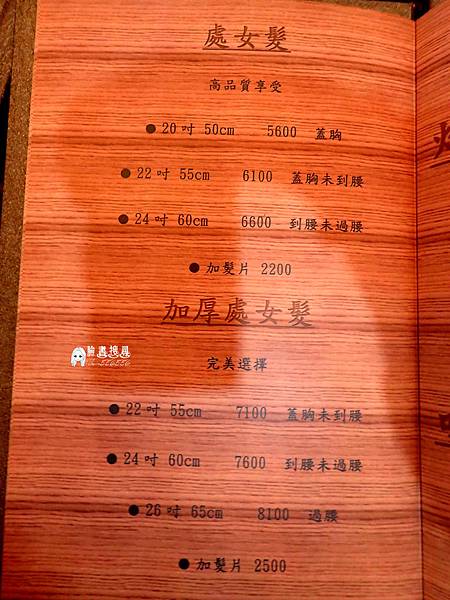 處女髮
高品質享受
●20吋 50cm 5600 蓋胸
●22吋 55cm 6100 蓋胸未到腰
●24吋 60cm 6600 到腰未過腰
●加髮片 2200
加厚處女髮
完美選擇
●22吋 55cm 7100 蓋胸未到腰
●24吋 60cm 7600 到腰未過腰
●26吋 65cm 8100 過腰
●加髮片 2500